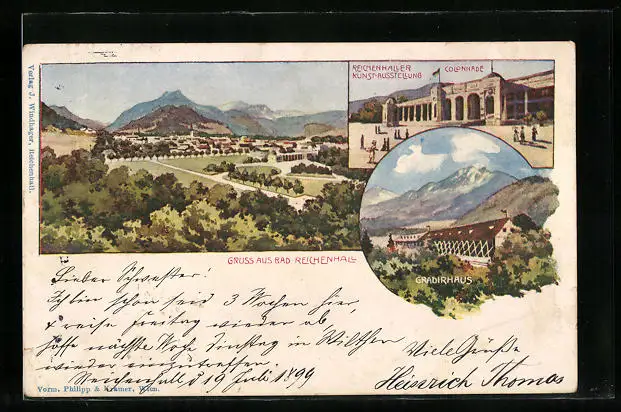 REICHENHALLER
KUNST-AUSSTELLUNG
COLONNADE
Verlag J. Windhager, Reichenhall.
GRUSS AUS BAD REICHENHALL
GRADIRHAUS
Lieber Schwester!
Ich bin schon seid 3 Wochen hier,
& reise Freitag wieder ab
hoffe nächste Woche Dinstag in
wieder einzutreffen.
Reichenhall d 19 Juli 1899
Viele Grüße
Heinrich Thomas
Vorm. Philipp & Kramer, Wien.